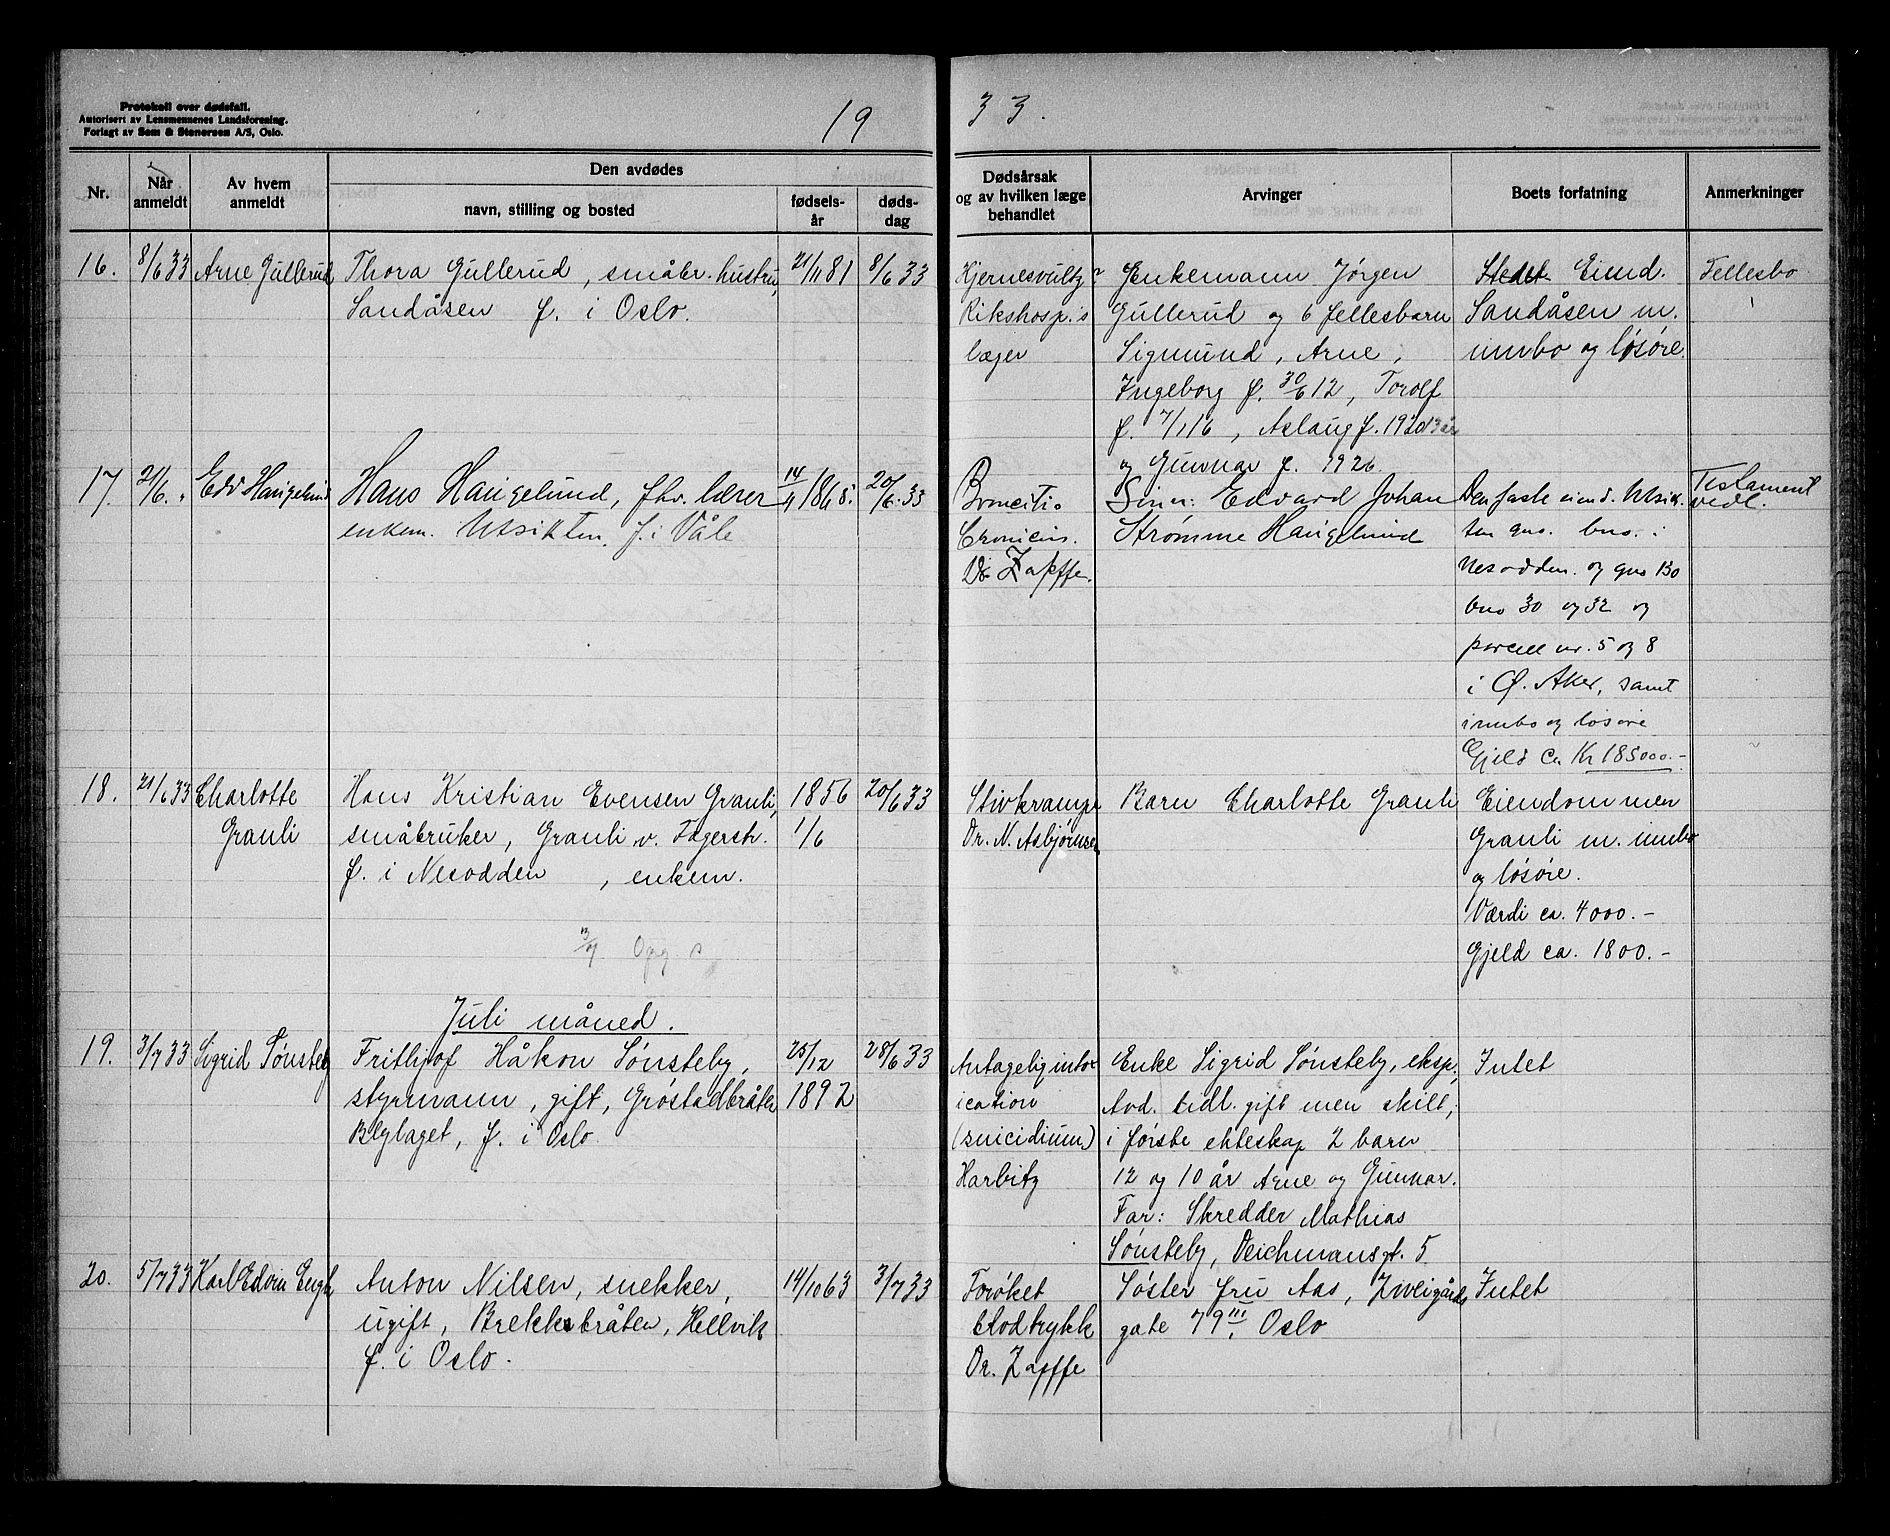 Protokoll over dødsfall.
Autorisert av Lensmennenes Landsforening.
Forlagt av Sem & Stenersen A/S, Oslo.
19 33.
Nr.
Når anmeldt
Av hvem anmeldt
Den avdødes
navn, stilling og bosted
fødsels-år
døds-dag
Dødsårsak og av hvilken læge behandlet
Arvinger
Boets forfatning
Anmerkninger
16. 8/6 33 Arne Gullerud
Thora Gullerud, småbr. hustru,
Sandåsen f. i Oslo.
21/11 81 8/6 33
Hjernesvulst?
Rikshosp.'s
læger
Enkemann Jørgen
Gullerud og 6 fellesbarn
Sigmund, Arne,
Ingeborg f. 30/6 12, Torolf
f. 7/1 16, Aslaug f. 1920
og Gunnar f. 1926.
Stedet Eiend.
Sandåsen m.
innbo og løsøre.
Fellesbo
17. 21/6. " Edv Haugelund
Hans Haugelund, fhv. lærer
enkem. Utsikten. f. i Våle
14/4 1848. 20/6 33
Broncitis
Cronicus.
Dr Zapffe.
Sønn: Edvard Johan
Strømme Haugelund
Den faste eiend. Utsik-
ten gns. bns. i
Nesodden. og gns 130
bns 30 og 32 og
parcell nr. 5 og 8
i Ø. Aker, samt
innbo og løsøre
Gjeld ca Kr 185000.-
Testament
vedl.
18. 21/6 33 Charlotte
Granli
Hans Kristian Evensen Granli,
småbruker, Granli v. Fagerstr.
f. i Nesodden , enkem.
1856
1/6
20/6 33
Stivkrampe
Dr. N. Asbjørnsen
Barn Charlotte Granli
Eiendommen
Granli m. innbo
og løsøre.
Værdi ca. 4000.-
Gjeld ca. 1800.-
3/7 Opg. s
Juli måned.
19. 3/7 33 Sigrid Sønsteby
Frithjof Håkon Sønsteby,
styrmann, gift, Grøstadbråten
Blylaget, f. i Oslo.
25/12
1892
28/6 33
Antagelig intox-
ication
(suicidium)
Harbitz
Enke Sigrid Sønsteby, eksp.,
Avd. tidl. gift men skilt,
i første ekteskap 2 barn
12 og 10 år Arne og Gunnar.
Far: Skredder Mathias
Sønsteby, Deichmansgt. 5
Intet
20. 5/7 33 Karl Edvin Engh
Anton Nilsen, snekker,
ugift, Brekkebråten, Hellvik
f. i Oslo.
14/10 63 3/7 33
Forøket
blodtrykk
Dr. Zapffe
Søster fru Aas, Zweigårds
gate 79 III, Oslo
Intet